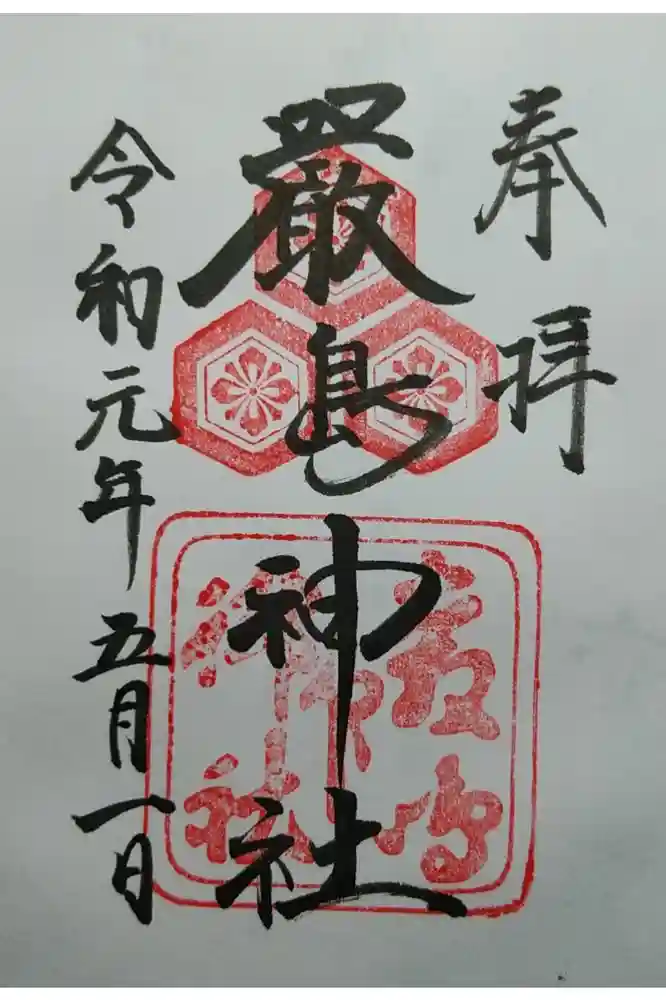 奉拝
厳島神社
令和元年五月一日